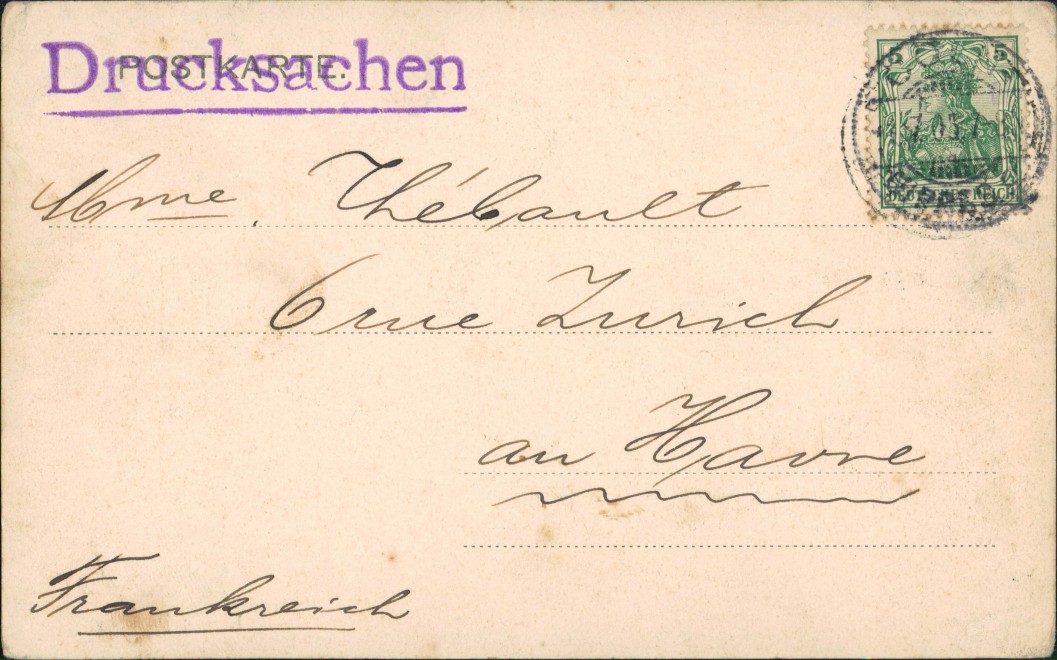 Drucksachen
POSTKARTE.
5 5
REICH
Mme. Thébault
6 rue Zurich
au Havre
Frankreich